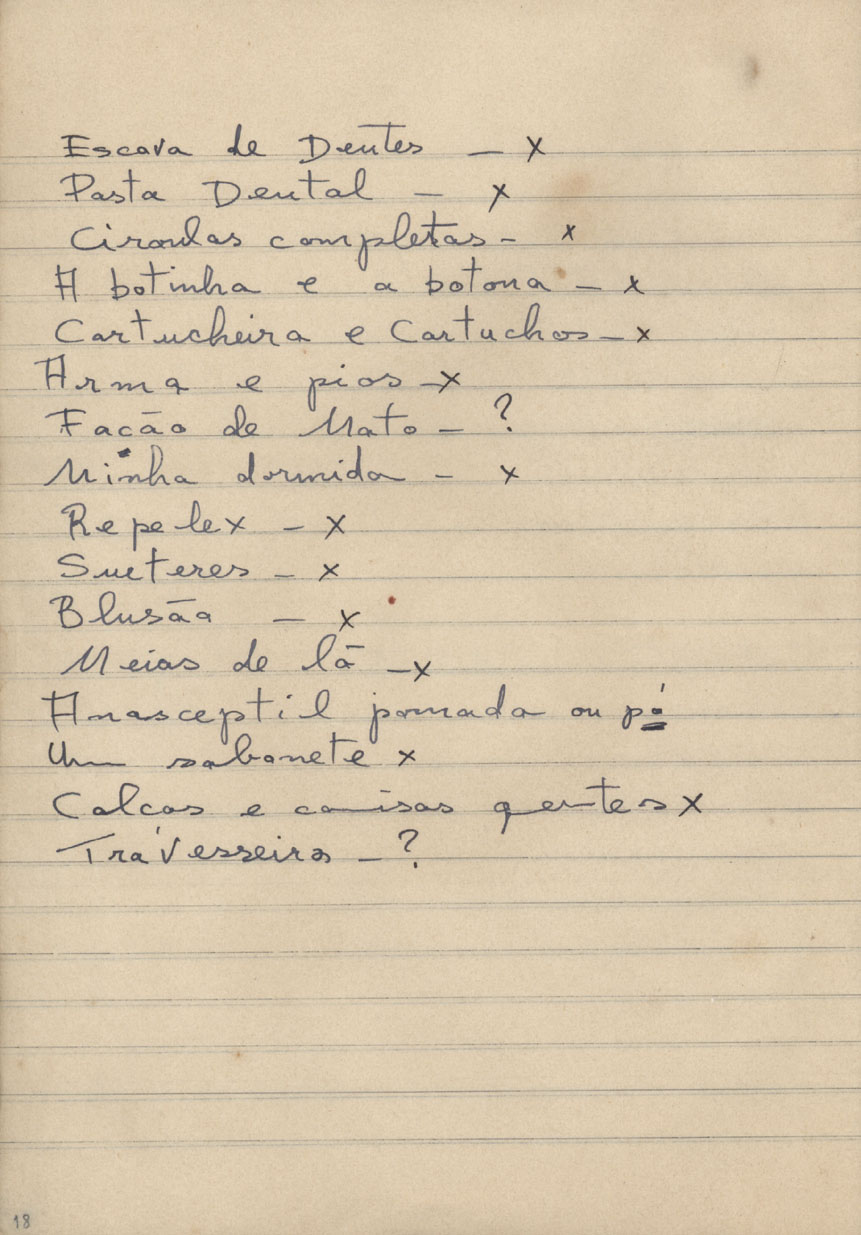 Escova de Dentes — x
Pasta Dental — x
Ciroulas completas - x
A botinha e a botona — x
Cartucheira e Cartuchos — x
Arma e pios — x
Facão de Mato — ?
Minha dormida - x
Repelex — x
Sueteres — x
Blusão — x
Meias de lã — x
Anasceptil pomada ou pó
Um sabonete x
Calcas e camisas quentes x
Travesseiros — ?
18